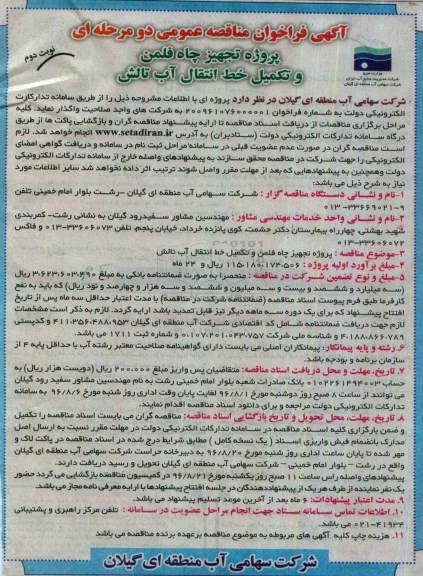 آگهی فراخوان مناقصه عمومی دو مرحله ای
پروژه تجهیز چاه فلمن
و تکمیل خط انتقال آب تالش
نوبت دوم
شرکت سهامی آب منطقه ای گیلان در نظر دارد پروژه ای با اطلاعات مشروحه ذیل را از طریق سامانه تدارکات
الکترونیکی دولت به شماره فراخوان ۲۰۰۹۶۱۰۷۶۰۰۰۰۰۱ به شرکت های واجد صلاحیت واگذار نماید. کلیه
مراحل برگزاری مناقصات از دریافت اسناد مناقصه تا ارایه پیشنهاد مناقصه گران و بازگشایی پاکت ها از طریق
درگاه سامانه تدارکات الکترونیکی دولت (ستادیران) به آدرس www.setadiran.ir انجام خواهد شد. لازم
است مناقصه گران در صورت عدم عضویت قبلی در سامانه مراحل ثبت نام در سامانه و دریافت گواهی امضای
الکترونیکی را جهت شرکت در مناقصه محقق سازند به پیشنهادهای واصله خارج از سامانه تدارکات الکترونیکی
دولت وهمچنین به پیشنهادهایی که بعد از مهلت مقرر واصل شوند ترتیب اثر داده نخواهد شد سایر اطلاعات مورد
نیاز به شرح ذیل می باشد:
۱-نام و نشانی دستگاه مناقصه گزار : شرکت سهامی آب منطقه ای گیلان -رشت بلوار امام خمینی تلفن
۰۱۳-۳۳۶۶۹۰۲۱-۹
۲-نام و نشانی واحد خدمات مهندسی مشاور : مهندسین مشاور سفیدرود گیلان به نشانی رشت- کمربندی
شهید بهشتی، چهارراه بیمارستان دکتر حشمت، کوی پانزده خرداد، خیابان پنجم، تلفن ۰۱۳-۳۳۶۰۶۰۷۳ و فاکس
۰۱۳-۳۳۶۰۶۰۷۲
۳-موضوع مناقصه : پروژه تجهیز چاه فلمن و تکمیل خط انتقال آب تالش
۴-مبلغ برآورد اولیه پروژه : ۱۱۵،۱۸۰،۱۷۴،۵۰۶ ریال و ۲۴ ماه
۵- مبلغ و نوع تضمین شرکت در مناقصه : منحصرا به صورت ضمانتنامه بانکی به مبلغ ۳،۶۲۳،۶۰۳،۴۹۰ ریال
(سه میلیارد و ششصد و بیست و سه میلیون و ششصد و سه هزار و چهارصد و نود ریال) که باید به نفع
کارفرما طبق فرم پیوست اسناد مناقصه (ضمانتنامه شرکت در مناقصه) با مدت اعتبار حداقل سه ماه پس از تاریخ
افتتاح پیشنهاد که برای یک دوره سه ماهه دیگر نیز قابل تمدید باشد ارایه گردد. لازم به ذکر است مشخصات
لازم جهت دریافت ضمانتنامه شامل کد اقتصادی شرکت آب منطقه ای گیلان ۴۱۱،۳۵۶،۴۸۸،۹۵۳ و کدپستی
۴،۱۸۸،۸۶۰،۷۸۹ و شناسه ملی شرکت ۱۰،۷۲۰،۱۰۴،۷۵۷ و شماره ثبت ۱۷۱۱ می باشد.
۶. رشته و پایه پیمانکار: پیمانکاران اصلی می بایست دارای گواهینامه صلاحیت معتبر رشته آب با حداقل پایه ۴ از
سازمان برنامه و بودجه باشد.
۷. تاریخ، مهلت و محل دریافت اسناد مناقصه: متقاضیان پس واریز مبلغ ۲۰۰،۰۰۰ ریال (دویست هزار ریال) به
بانک صادرات شعبه بلوار امام خمینی رشت به نام مهندسین مشاور سفید رود گیلان
می توانند از ساعت ۸ صبح روز دوشنبه مورخ ۹۶/۸/۱ لغایت پایان وقت اداری روز شنبه مورخ ۹۶/۸/۶ به سامانه
تدارکات الکترونیکی دولت مراجعه و برای دانلود اسناد مناقصه اقدام نمایند.
۸. تاریخ، مهلت، محل تحویل و تاریخ بازگشایی اسناد مناقصه: مناقصه گران می بایست اسناد مناقصه را تکمیل
و ضمن بارگزاری کلیه اسناد مناقصه در سامانه تدارکات الکترنیکی دولت در مهلت مقرر نسبت به ارسال اصل
مدارک بانضمام فیش واریزی اسناد ( یک نسخه کامل ) مطابق شرایط درج شده در اسناد مناقصه در پاکت لاک و
مهر شده تا پایان ساعت اداری روز شنبه مورخ ۹۶/۸/۲۰ به دبیرخانه حراست شرکت سهامی آب منطقه ای گیلان
واقع در رشت - بلوار امام خمینی - شرکت سهامی آب منطقه ای گیلان تحویل و رسید دریافت دارند.
پیشنهادهای واصله راس ساعت ۱۱ صبح روز یکشنبه مورخ ۹۶/۸/۲۱ در کمیسیون مناقصه بازگشایی می گردد حضور
یک نفر نماینده از طرف هر یک از پیشنهاددهندگان در جلسه افتتاح پیشنهادها با ارایه معرفی نامه مجاز می باشد.
۹. مدت اعتبار پیشنهادات: ۶ ماه بعد از آخرین موعد تسلیم پیشنهاد می باشد.
۱۰. اطلاعات تماس سامانه ستاد جهت انجام مراحل عضویت در سامانه : تلفن مرکز راهبری و پشتیبانی
۰۲۱-۴۱۹۳۴ می باشد.
۱۱. هزینه چاپ کلیه آگهی های مربوطه به موضوع مناقصه برعهده برنده مناقصه می باشد.
شرکت سهامی آب منطقه ای گیلان